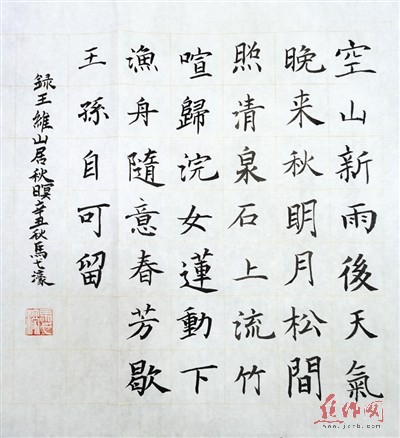 空山新雨後天氣
晚来秋明月松間
照清泉石上流竹
喧歸浣女蓮動下
漁舟隨意春芳歇
王孫自可留
録王維山居秋暝辛丑秋馬
焦作网
www.jzrb.com